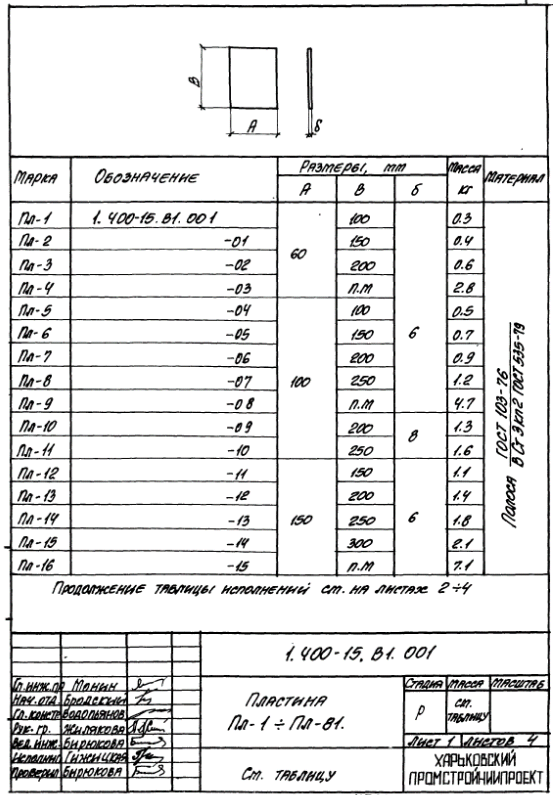 В
А
δ
Марка Обозначение Размеры, мм Масса кг Материал
А В δ
Пл-1 1.400-15.В1.001 60 100 6 0.3
Пл-2 -01 150 0.4
Пл-3 -02 200 0.6
Пл-4 -03 п.м 2.8
Пл-5 -04 100 100 0.5
Пл-6 -05 150 0.7
Пл-7 -06 200 0.9
Пл-8 -07 250 1.2
Пл-9 -08 п.м 4.7
Пл-10 -09 200 8 1.3
Пл-11 -10 250 1.6
Пл-12 -11 150 150 6 1.1
Пл-13 -12 200 1.4
Пл-14 -13 250 1.8
Пл-15 -14 300 2.1
Пл-16 -15 п.м 7.1
Полоса ГОСТ 103-76
В Ст 3 кп2 ГОСТ 535-79
Продолжение таблицы исполнений см. на листах 2÷4
1.400-15.В1.001
Гл. инж. пр Монин
Нач. отд. Бродский
Гл. констр Водопьянов
Рук. гр. Жилякова
Вед. инж. Бирюкова
Исполнил Гижицкая
Проверил Бирюкова
Пластина
Пл-1 ÷ Пл-81.
См. таблицу
Стадия Масса Масштаб
Р см. таблицу
Лист 1 Листов 4
ХАРЬКОВСКИЙ
ПРОМСТРОЙНИИПРОЕКТ